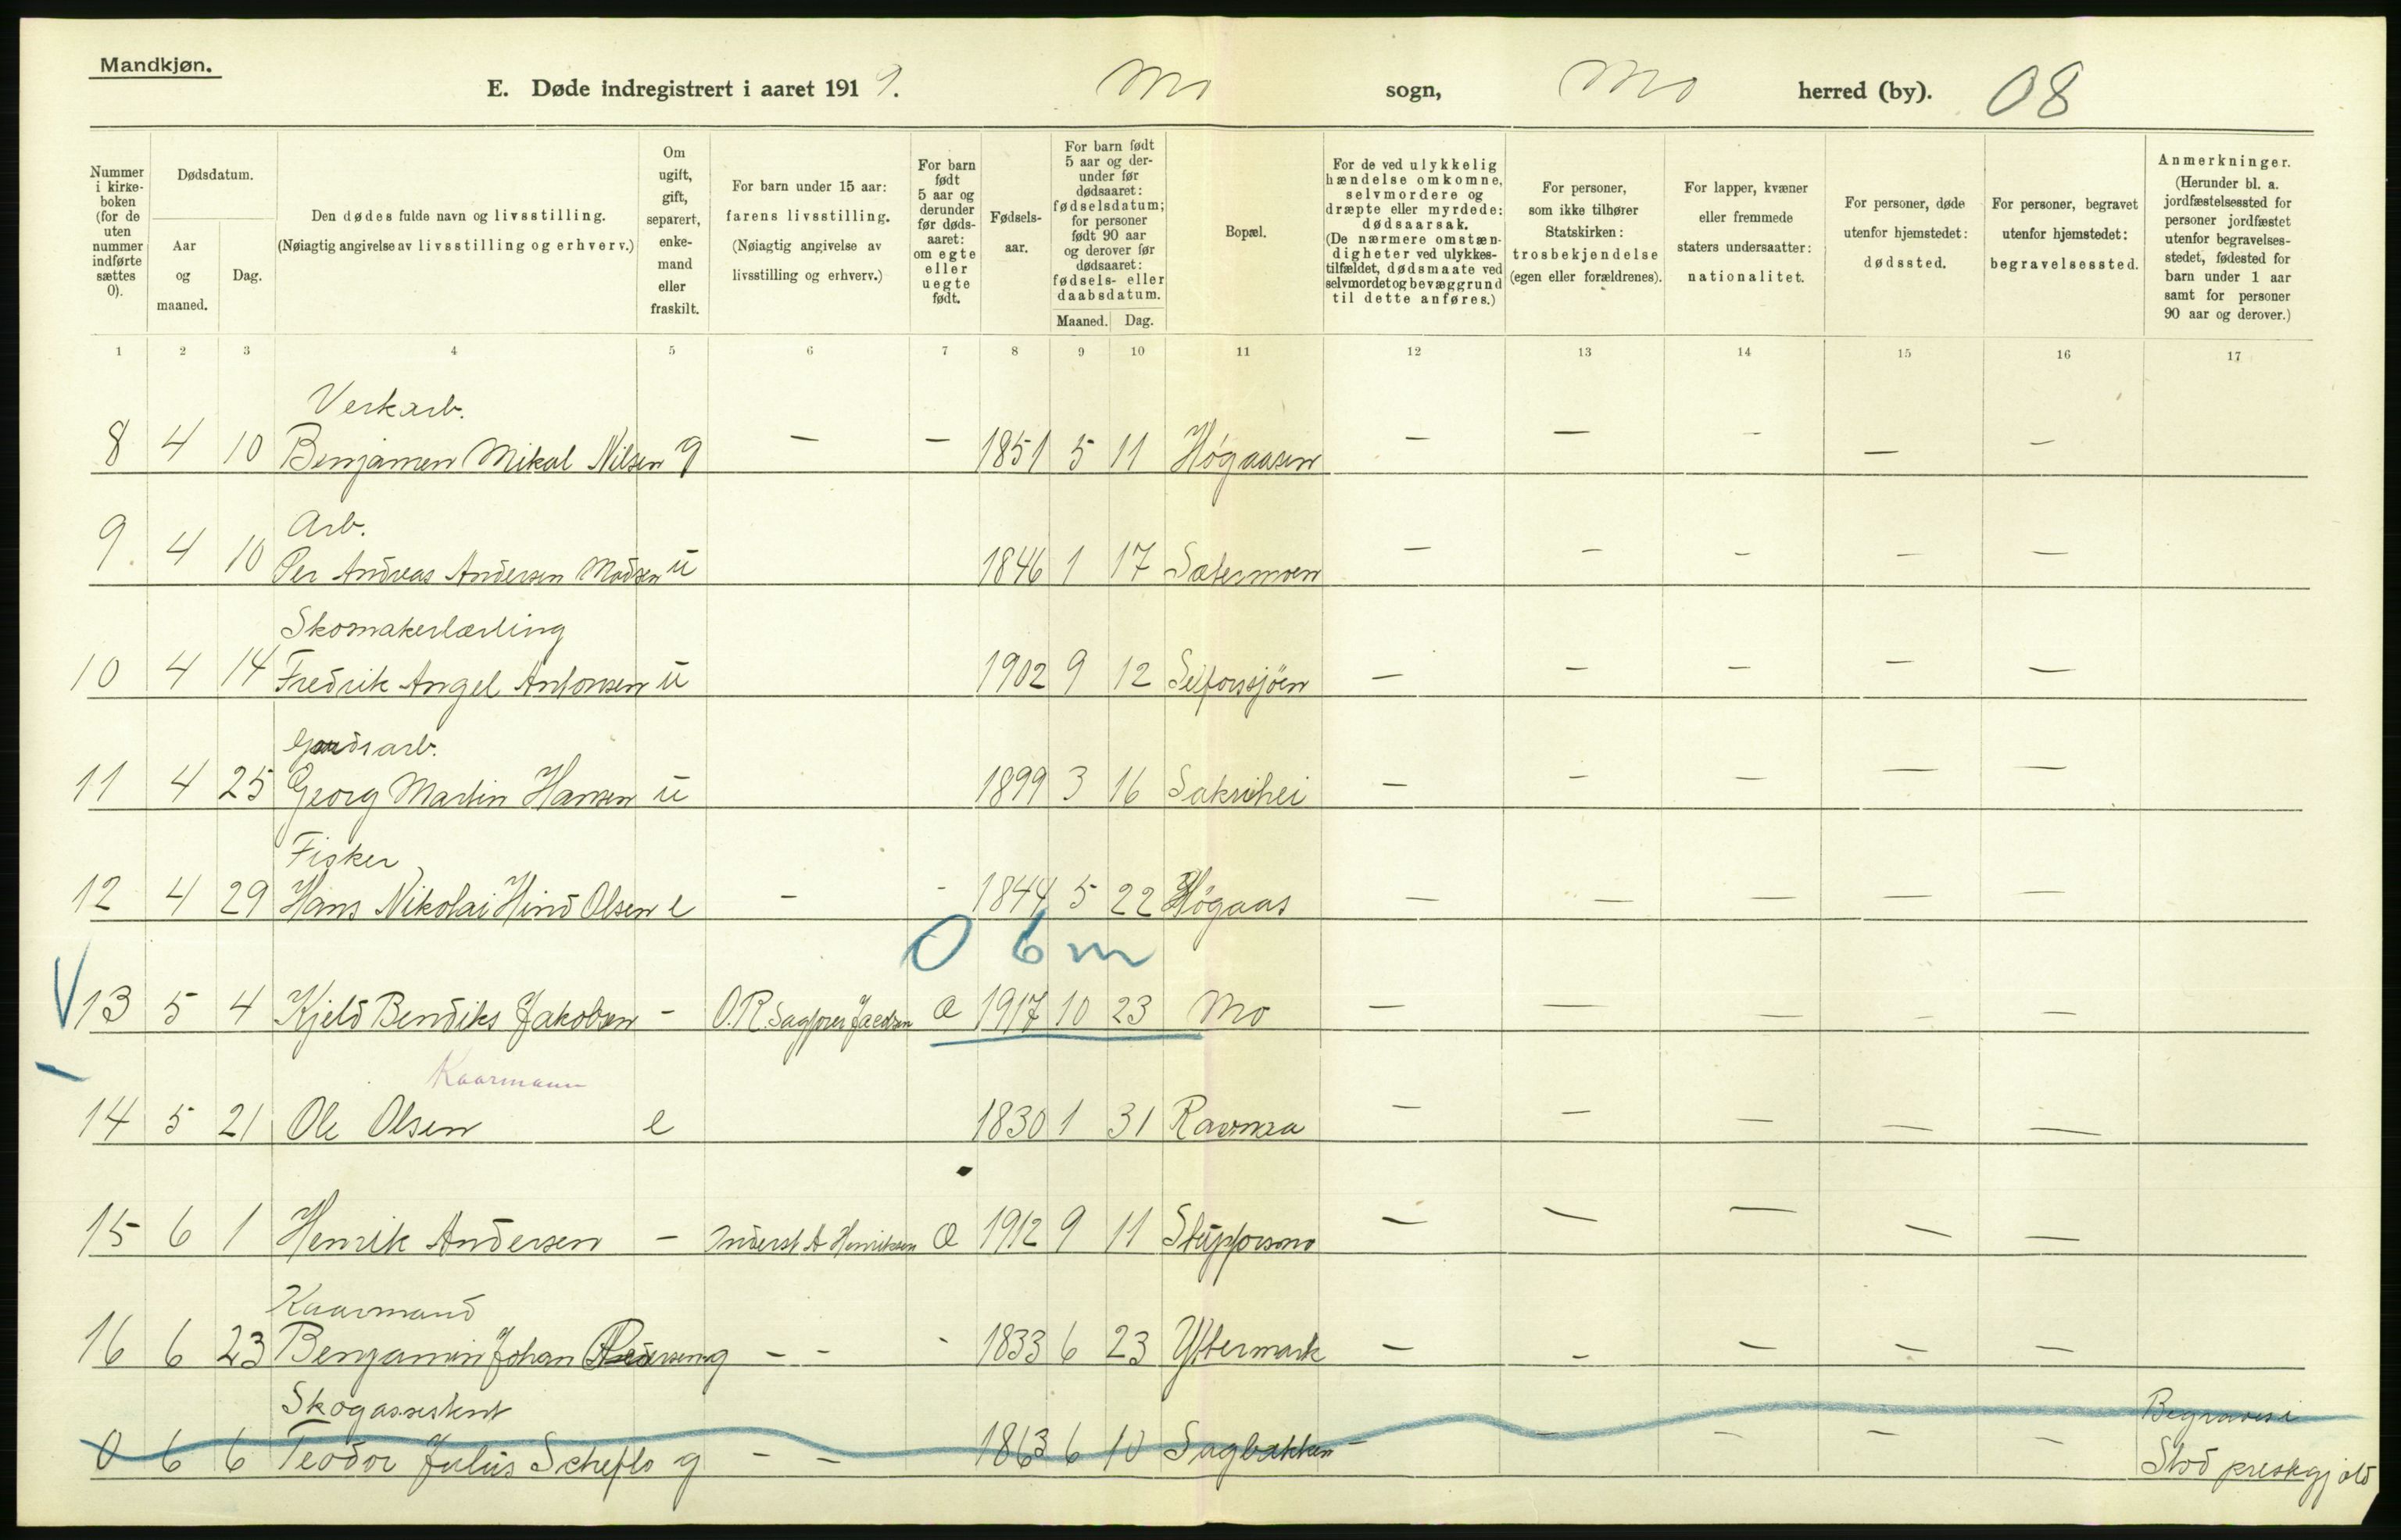 Mandkjøn.
E. Døde indregistrert i aaret 1919. Mo sogn, Mo herred (by). 08
Nummer i kirke- boken (for de uten nummer indførte sættes 0).
Dødsdatum.
Aar og maaned.
Dag.
Den dødes fulde navn og livsstilling.
(Nøiagtig angivelse av livsstilling og erhverv.)
Om ugift, gift, separert, enke- mand eller fraskilt.
For barn under 15 aar: farens livsstilling. (Nøiagtig angivelse av livsstilling og erhverv.)
For barn født 5 aar og derunder før døds- aaret: om egte eller uegte født.
Fødsels- aar.
For barn født 5 aar og der- under før dødsaaret: fødselsdatum; for personer født 90 aar og derover før dødsaaret: fødsels- eller daabsdatum.
Maaned. Dag.
Bopæl.
For de ved ulykkelig hændelse omkomne, selvmordere og dræpte eller myrdede: dødsaarsak. (De nærmere omstæn- digheter ved ulykkes- tilfældet, dødsmaate ved selvmordet og bevæggrund til dette anføres.)
For personer, som ikke tilhører Statskirken: trosbekjendelse (egen eller forældrenes).
For lapper, kvæner eller fremmede staters undersaatter: nationalitet.
For personer, døde utenfor hjemstedet: dødssted.
For personer, begravet utenfor hjemstedet: begravelsessted.
Anmerkninger. (Herunder bl. a. jordfæstelsessted for personer jordfæstet utenfor begravelses- stedet, fødested for barn under 1 aar samt for personer 90 aar og derover.)
1 2 3 4 5 6 7 8 9 10 11 12 13 14 15 16 17
Verkarb.
8 4 10 Benjamen Mikal Nilsen g — — 1851 5 11 Høgaasen — — — — —
Arb.
9. 4 10 Per Andreas Andersen Madsen u 1846 1 17 Sætermoen — — — — —
Skomakerlærling
10 4 14 Fredrik Angel Antonsen u 1902 9 12 Selforssjöen — — — — —
Gaardsarb.
11 4 25 Georg Martin Hansen u 1899 3 16 Saksihei — — — — —
Fisker
12 4 29 Hans Nikolai Hind Olsen e - - 1844 5 22 Høgaas — — — — —
0 6 m
V 13 5 4 Kjeld Bendiks Jakobsen - O.R. Sagfører Jacobsen a 1917 10 23 Mo — — — — —
Kaarmann
14 5 21 Ole Olsen e 1830 1 31 Ravnaa — — — — —
15 6 1 Henrik Andersen - Inderst A Henriksen a 1912 9 11 Stupforsmo — — — — —
Kaarmand
16 6 23 Benjamin Johan Pedersen g - - - 1833 6 23 Yttermark — — — — —
Skogassistent
0 6 6 Teodor Julius Scheflo g - - 1863 6 10 Sagbakken — — — — — Begraves i
Stod prestegjæld